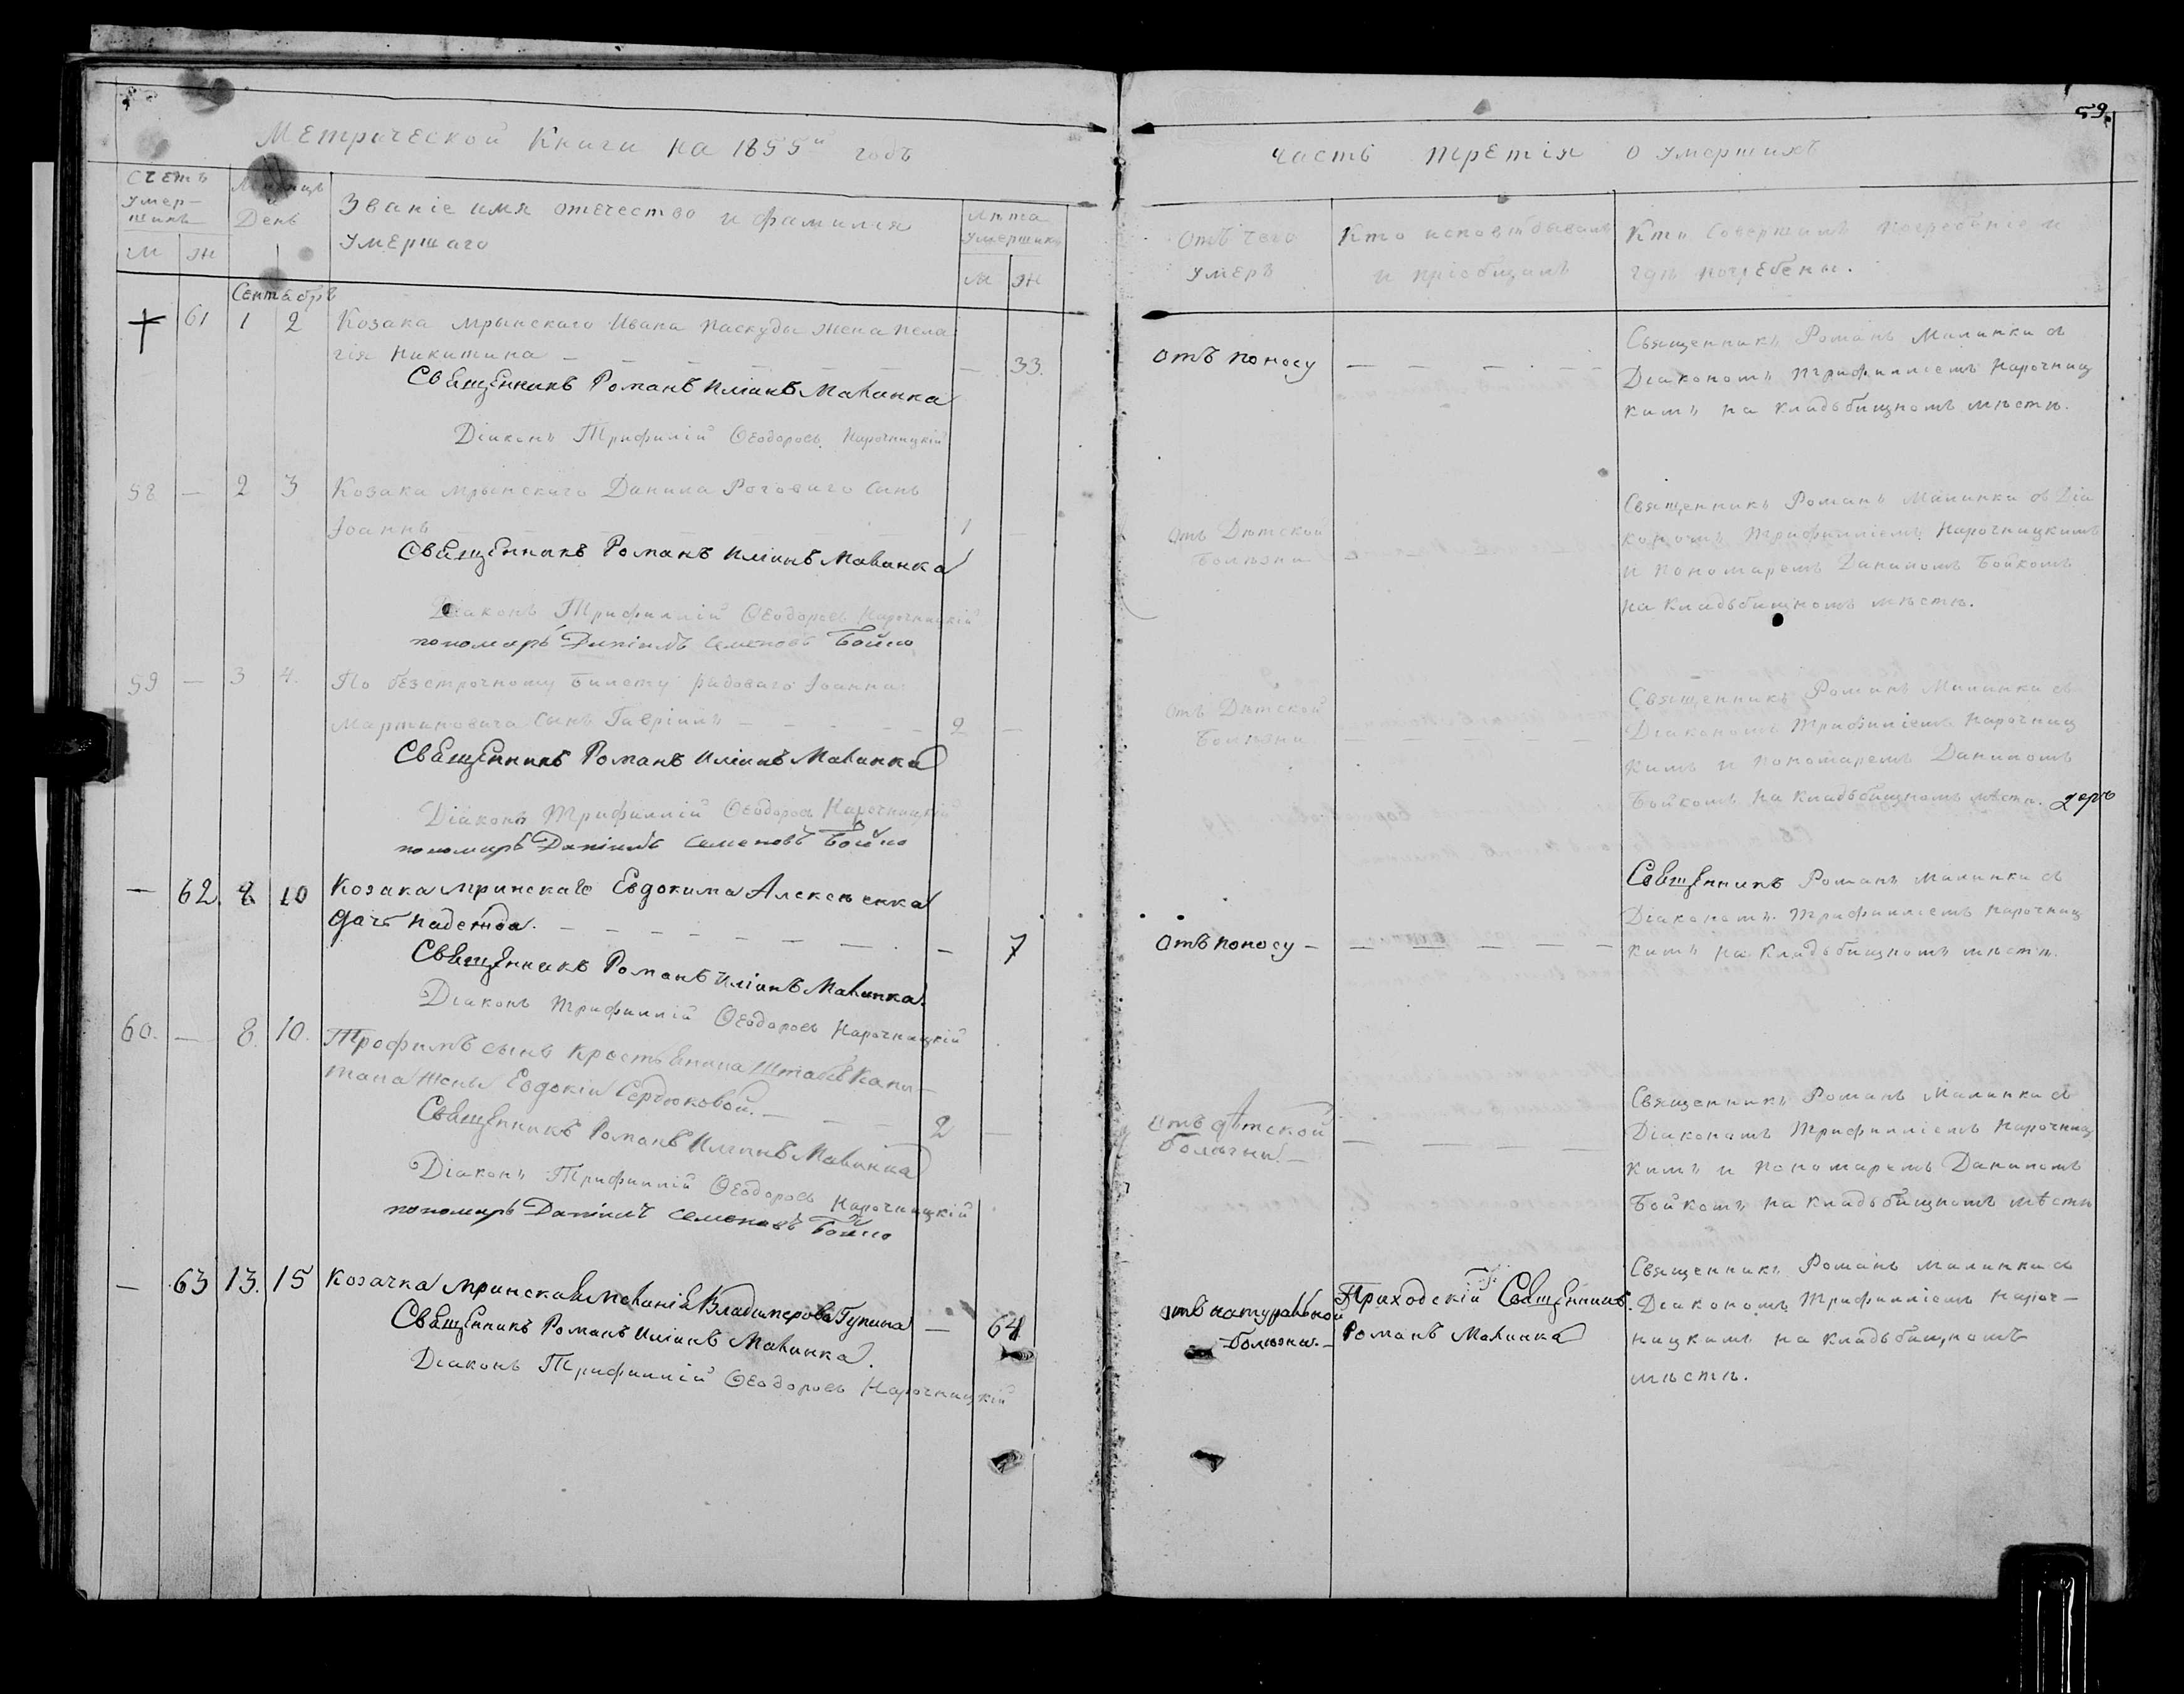 59.
Метрической Книги на 1855й годъ
часть третія о умершихъ
Счетъ умер-
шихъ
М Ж
День
Званіе имя отечество и фамилія
умершаго
Лѣта
умершихъ
М Ж
Отъ чего
умеръ
Кто исповѣдывалъ
и пріобщалъ
Кто совершалъ погребеніе и
гдѣ погребены.
Сентябрь
61 1 2 Козака мрынскаго Ивана Паскуды жена Пела
гія Никитина — — — — 33.
Священникъ Романъ Иліинъ Малинка
Діаконъ Трифиллій Ѳеодоровъ Нарочницкій
отъ поносу — — — — —
Священникъ Романъ Малинка съ
Діакономъ Трифилліемъ Нарочниц
кимъ на кладьбищномъ мѣстѣ.
58 — 2 3 Козака мрынскаго Данила Роговаго сынъ
Іоаннъ — — — 1 —
Священникъ Романъ Иліинъ Малинка
Діаконъ Трифиллій Ѳеодоровъ Нарочницкій
пономарь Даніилъ Семеновъ Бойко
отъ Дѣтской
Болѣзни
Священникъ Романъ Малинка съ Діа
кономъ Трифилліемъ Нарочницкимъ
и пономаремъ Даниломъ Бойкомъ
на кладьбищномъ мѣстѣ.
59 — 3 4. По безсрочному билету рядоваго Іоанна
Мартиновича сынъ Гавріилъ — — — — 2 —
Священникъ Романъ Иліинъ Малинка
Діаконъ Трифиллій Ѳеодоровъ Нарочницкій
пономарь Даніилъ Семеновъ Бойко
отъ Дѣтской
Болѣзни — — — — —
Священникъ Романъ Малинка съ
Діакономъ Трифилліемъ Нарочниц
кимъ и пономаремъ Даниломъ
Бойкомъ на кладьбищномъ мѣстѣ.
— 62. 8 10 Козака мринскаго Евдокима Алексѣенка
дочь Надежда. — — — — — — — 7
Священникъ Романъ Иліинъ Малинка.
Діаконъ Трифиллій Ѳеодоровъ Нарочницкій
отъ поносу — — — — — —
Священникъ Романъ Малинка съ
Діакономъ Трифилліемъ Нарочниц
кимъ на кладьбищномъ мѣстѣ.
60. — 8. 10. Трофимъ сынъ крестьянина Штабсъ Капи-
тана жены Евдокіи Сердюковой. — — — 2 —
Священникъ Романъ Иліинъ Малинка
Діаконъ Трифиллій Ѳеодоровъ Нарочницкій
пономарь Даніилъ Семеновъ Бойко
отъ дѣтской
болѣзни. — — — — —
Священникъ Романъ Малинка съ
Діакономъ Трифилліемъ Нарочниц
кимъ и пономаремъ Даниломъ
Бойкомъ на кладьбищномъ мѣстѣ
— 63 13. 15 Козачка мринская Меланія Владимерова Гупина — 64
Священникъ Романъ Иліинъ Малинка.
Діаконъ Трифиллій Ѳеодоровъ Нарочницкій
отъ натуральной
болѣзни. —
Приходскій Священникъ
Романъ Малинка
Священникъ Романъ Малинка съ
Діакономъ Трифилліемъ Нароч—
ницкимъ на кладьбищномъ
мѣстѣ.